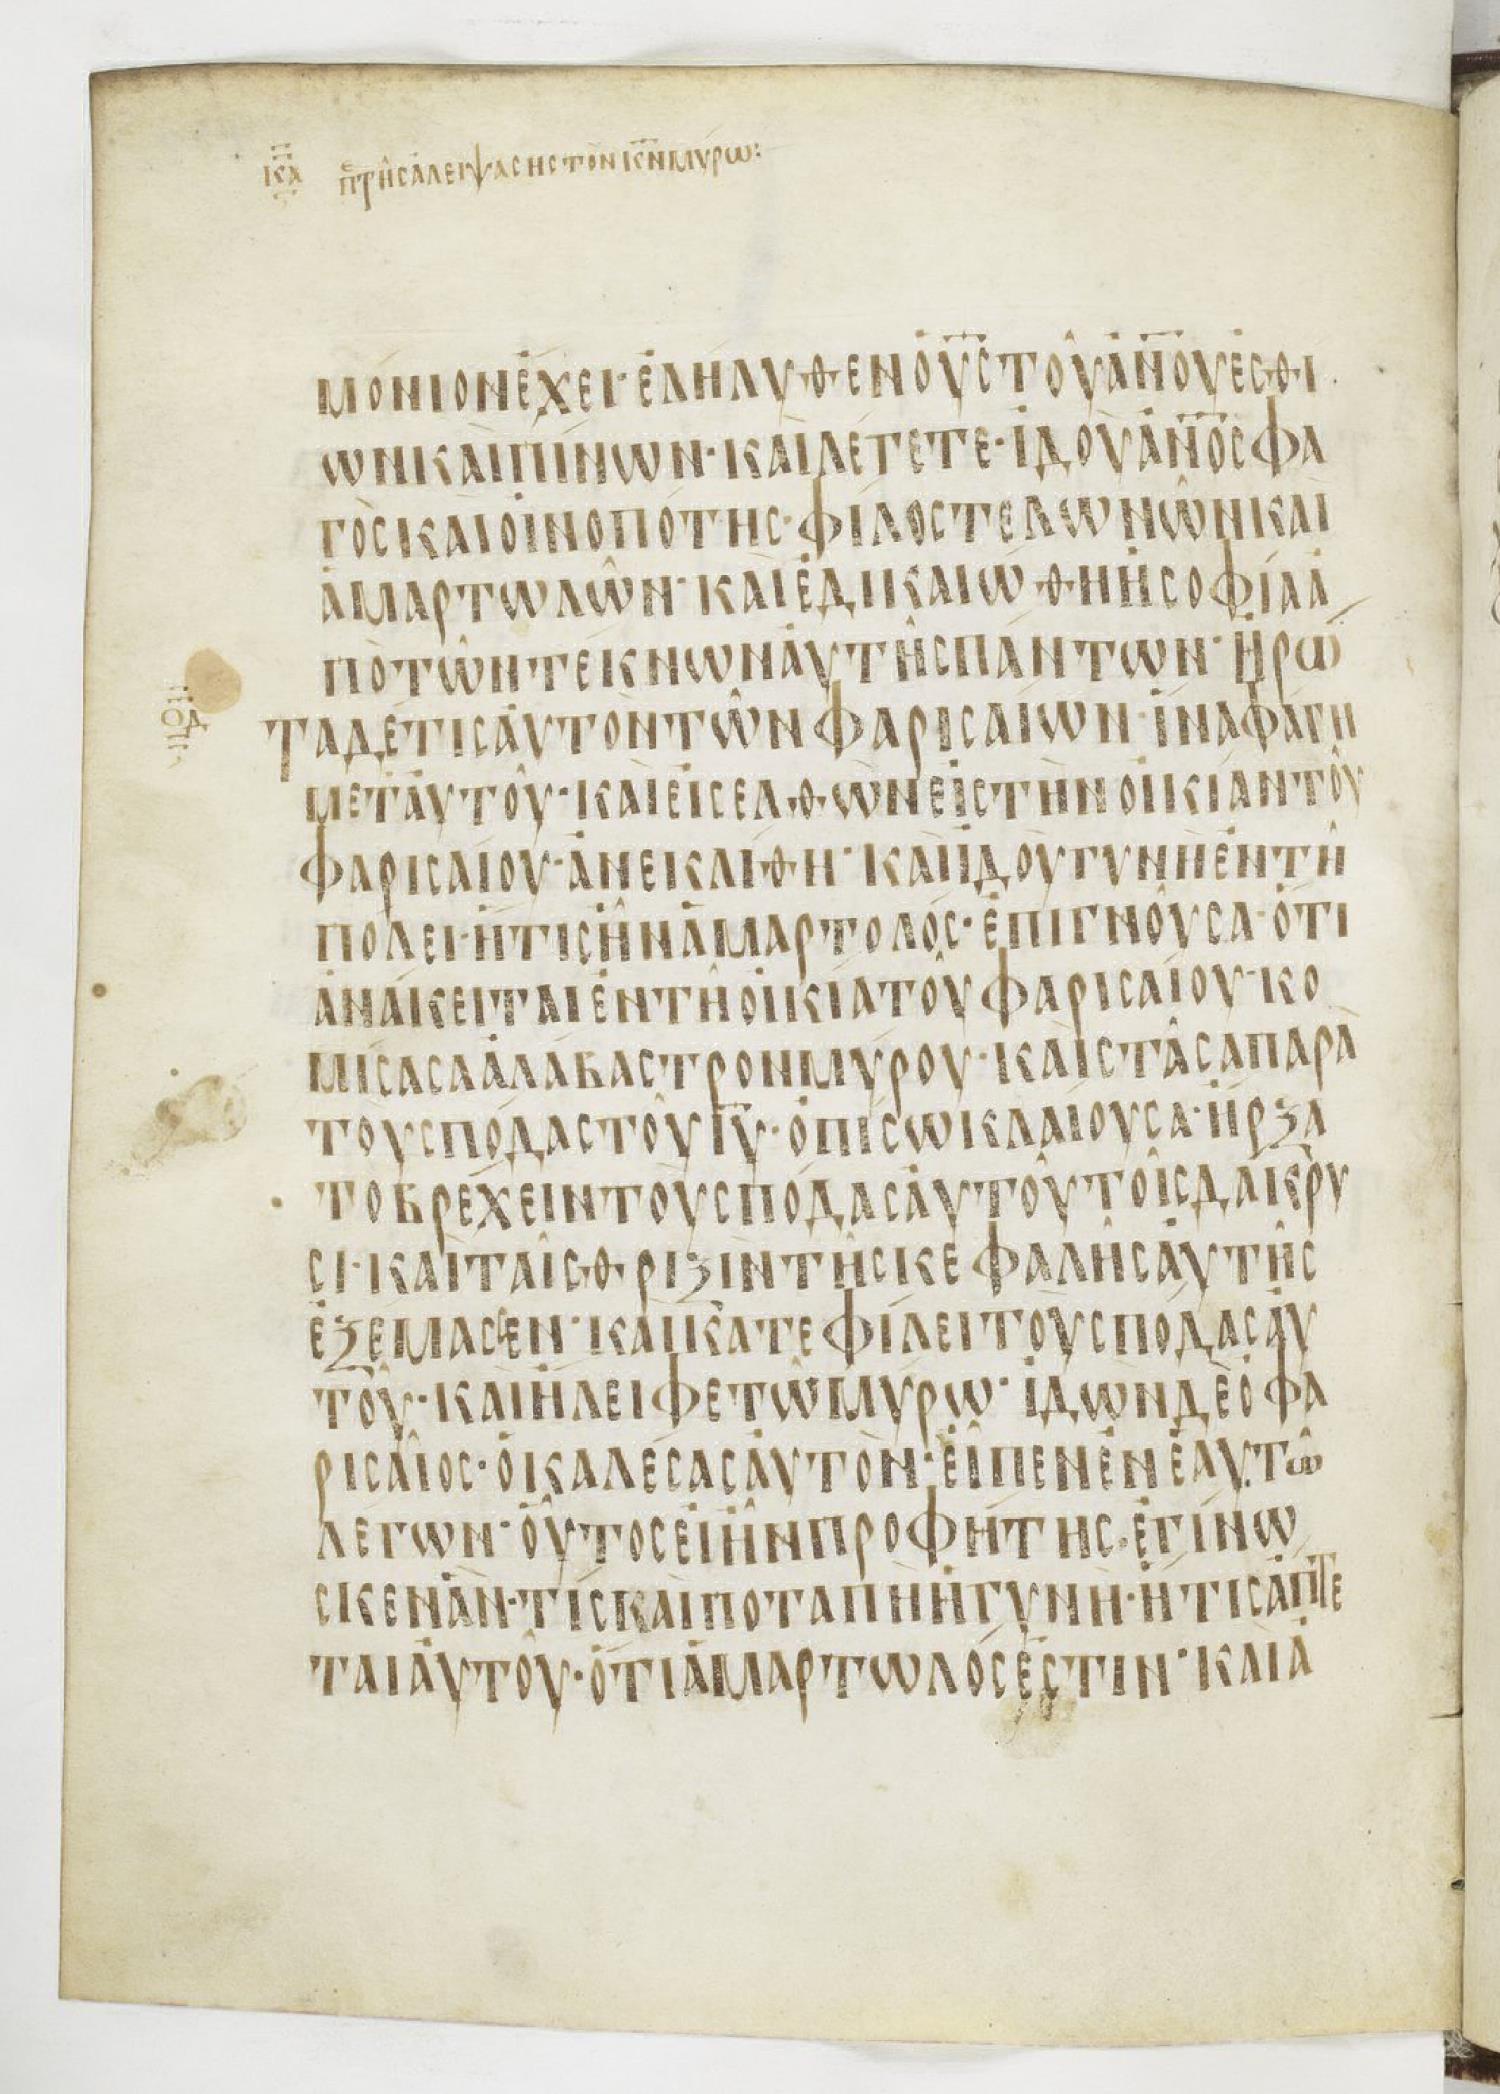 ΚΑ ΠΤΗΣΑΛΕΙΨΑΣΗΣΤΟΝΚΝΜΥΡΩ:
ΜΟΝΙΟΝΕΧΕΙ·ΕΛΗΛΥΘΕΝΟΥΣΤΟΥΑΝΟΥΕΣΘΙ
ΩΝΚΑΙΠΙΝΩΝ·ΚΑΙΛΕΓΕΤΕ·ΙΔΟΥΑΝΟΣΦΑ
ΓΟΣΚΑΙΟΙΝΟΠΟΤΗΣ·ΦΙΛΟΣΤΕΛΩΝΩΝΚΑΙ
ΑΜΑΡΤΩΛΩΝ·ΚΑΙΕΔΙΚΑΙΩΘΗΗΣΟΦΙΑΑ
ΠΟΤΩΝΤΕΚΝΩΝΑΥΤΗΣΠΑΝΤΩΝ·ΗΡΩ
ΟΔ
ΤΑΔΕΤΙΣΑΥΤΟΝΤΩΝΦΑΡΙΣΑΙΩΝ·ΙΝΑΦΑΓΗ
ΜΕΤΑΥΤΟΥ·ΚΑΙΕΙΣΕΛΘΩΝΕΙΣΤΗΝΟΙΚΙΑΝΤΟΥ
ΦΑΡΙΣΑΙΟΥ·ΑΝΕΚΛΙΘΗ·ΚΑΙΙΔΟΥΓΥΝΗΕΝΤΗ
ΠΟΛΕΙ·ΗΤΙΣΗΝΑΜΑΡΤΟΛΟΣ·ΕΠΙΓΝΟΥΣΑ·ΟΤΙ
ΑΝΑΚΕΙΤΑΙΕΝΤΗΟΙΚΙΑΤΟΥΦΑΡΙΣΑΙΟΥ·ΚΟ
ΜΙΣΑΣΑΑΛΑΒΑΣΤΡΟΝΜΥΡΟΥ·ΚΑΙΣΤΑΣΑΠΑΡΑ
ΤΟΥΣΠΟΔΑΣΤΟΥΙΥ·ΟΠΙΣΩΚΛΑΙΟΥΣΑ·ΗΡΞΑ
ΤΟΒΡΕΧΕΙΝΤΟΥΣΠΟΔΑΣΑΥΤΟΥΤΟΙΣΔΑΚΡΥ
ΣΙ·ΚΑΙΤΑΙΣΘΡΙΞΙΝΤΗΣΚΕΦΑΛΗΣΑΥΤΗΣ
ΕΞΕΜΑΣΣΕΝ·ΚΑΙΚΑΤΕΦΙΛΕΙΤΟΥΣΠΟΔΑΣΑΥ
ΤΟΥ·ΚΑΙΗΛΕΙΦΕΤΩΜΥΡΩ·ΙΔΩΝΔΕΟΦΑ
ΡΙΣΑΙΟΣ·ΟΚΑΛΕΣΑΣΑΥΤΟΝ·ΕΙΠΕΝΕΝΕΑΥΤΩ
ΛΕΓΩΝ·ΟΥΤΟΣΕΙΗΝΠΡΟΦΗΤΗΣ·ΕΓΙΝΩ
ΣΚΕΝΑΝ·ΤΙΣΚΑΙΠΟΤΑΠΗΗΓΥΝΗ·ΗΤΙΣΑΠΤΕ
ΤΑΙΑΥΤΟΥ·ΟΤΙΑΜΑΡΤΩΛΟΣΕΣΤΙΝ·ΚΑΙΑ